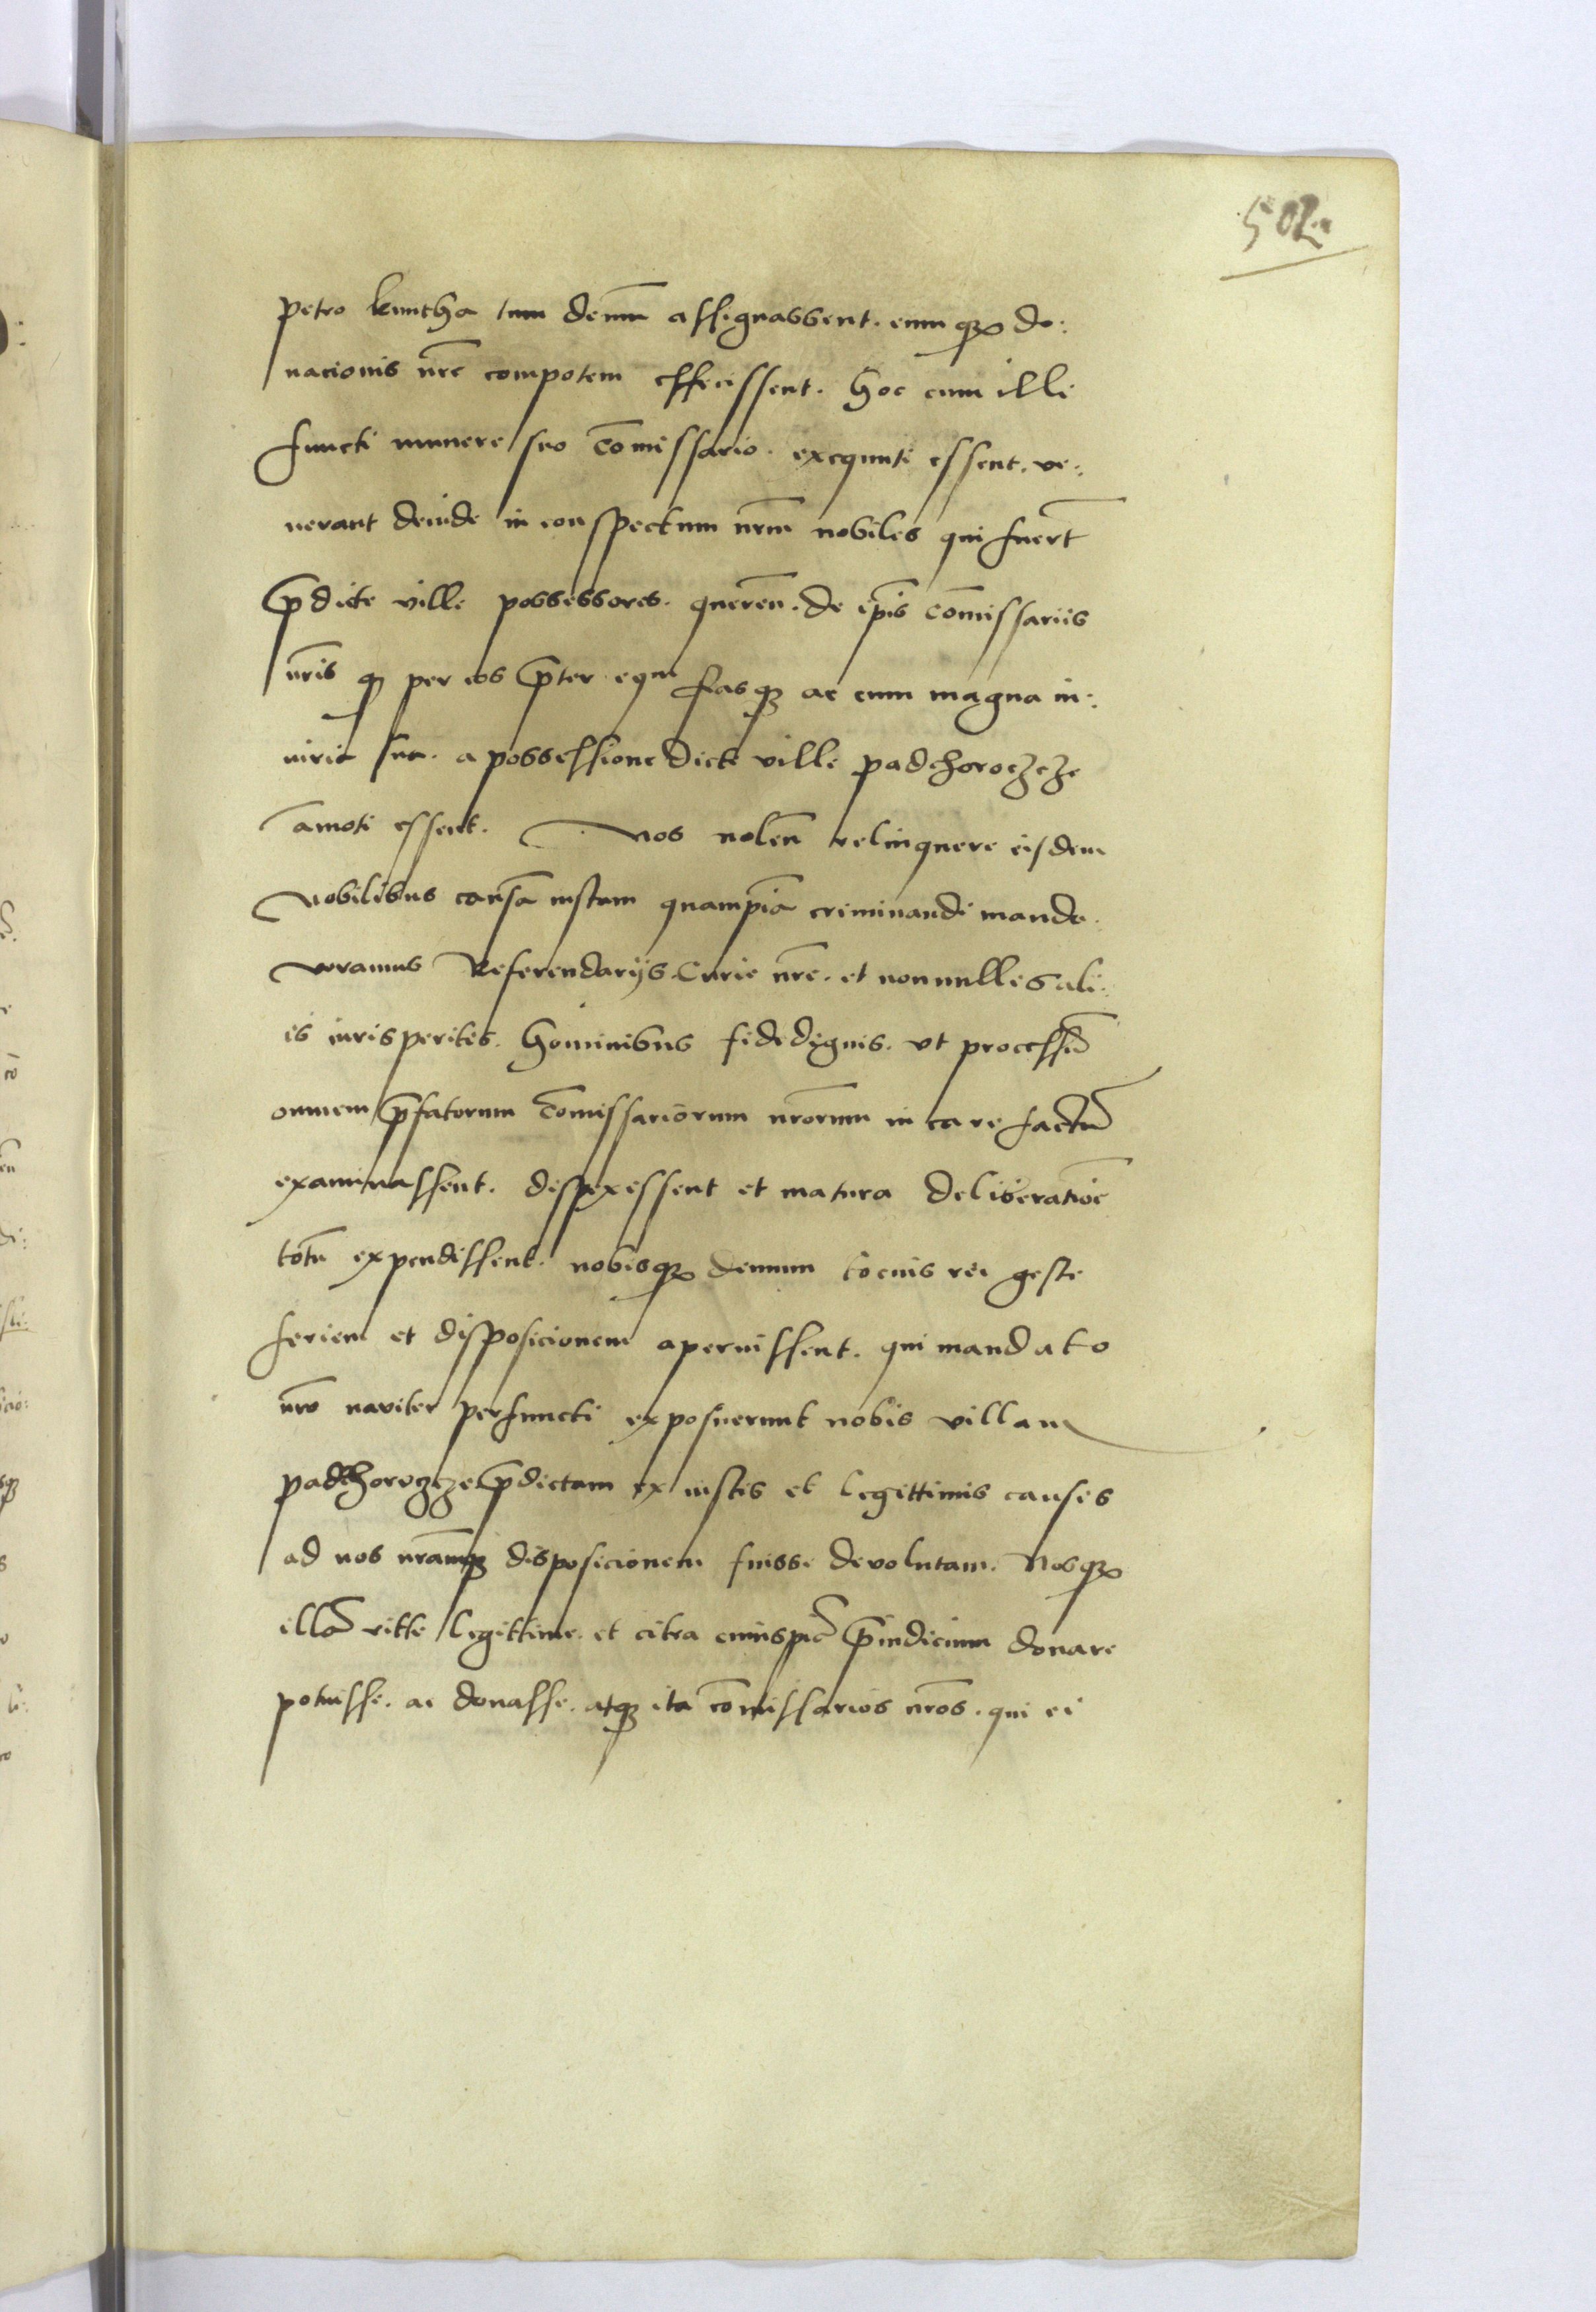 502
petro kuncha tum demū assignassent. eumq3 do:
nacionis nr̄e compotem effecissent. Hoc cum illi
functi munere suo Cōmissario. exequuti essent. ve:
nerant deinde in conspectum nr̄m nobiles qui fuer̄t
p̄dicte ville possessores. queren̄. de ip̄is cōmissariis
nr̄is q per eos p̄ter equū fasq3 ac cum magna in:
iuria sua. a possessione dicte ville padchoroczcze
amoti essent. Nos nolen̄ relinquere eisdem
Nobilibus causā iustam quampiā criminandi manda:
veramus Referendarijs Curie nr̄e. et nonnullis ali:
is iurisperitis. hominibus fidedignis. vt processū
omnem p̄fatorum Cōmissariorum nr̄orum in ea re factū
examinassent. despexissent et matura deliberatiōe
totū expendissent. nobisq3 demum tocius rei geste
seriem et disposicionem aperuissent. qui mandato
nr̄o naviter perfuncti exposuerunt nobis villam
padchoroczcze p̄dictam ex iustis et legittimis causis
ad nos nr̄amq3 disposicionem fuisse devolutam. Nosq3
illā ritte legittime. et citra cuiuspiā p̄iudicium donare
potuisse. ac donasse. atq3 ita cōmissarios nr̄os. qui ei